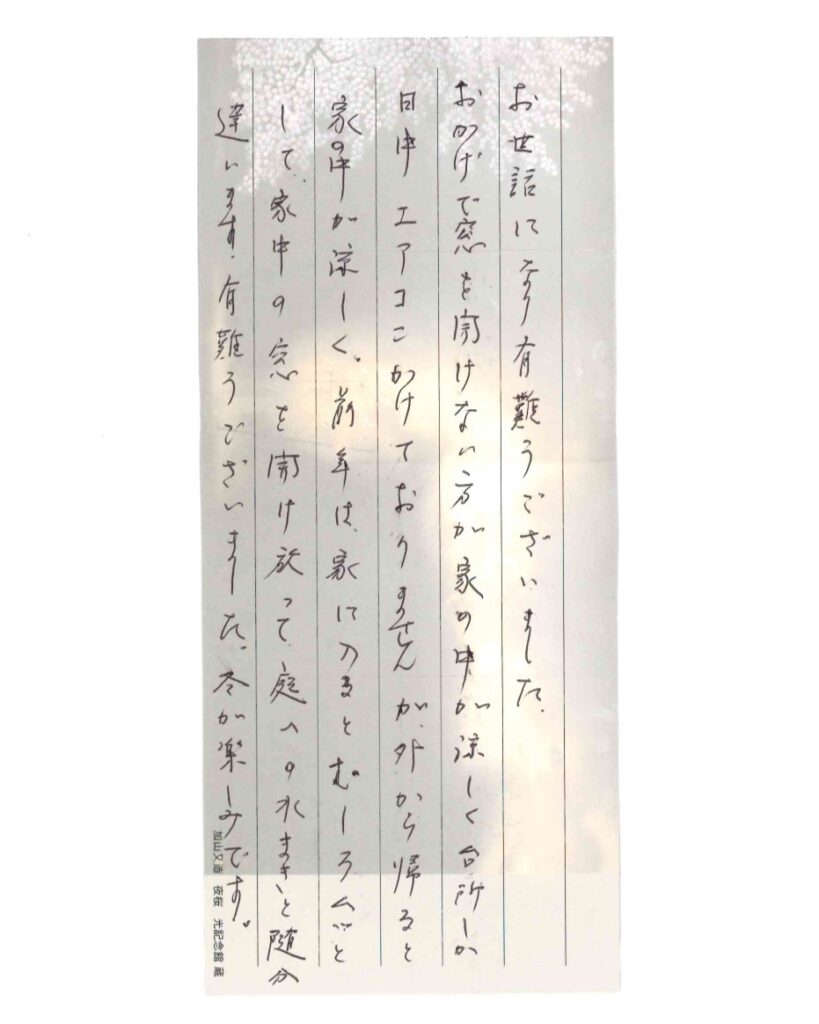 お世話になり有難うございました.
おかげで窓を開けない方が家の中が涼しく台所しか
日中エアコンかけておりませんが、外から帰ると
家の中が涼しく、前年は、家に入るとむしろムッと
して、家中の窓を開け放って、庭への水まきと随分
違います。有難うございました。冬が楽しみです。
加山又造 夜桜 光記念館 蔵